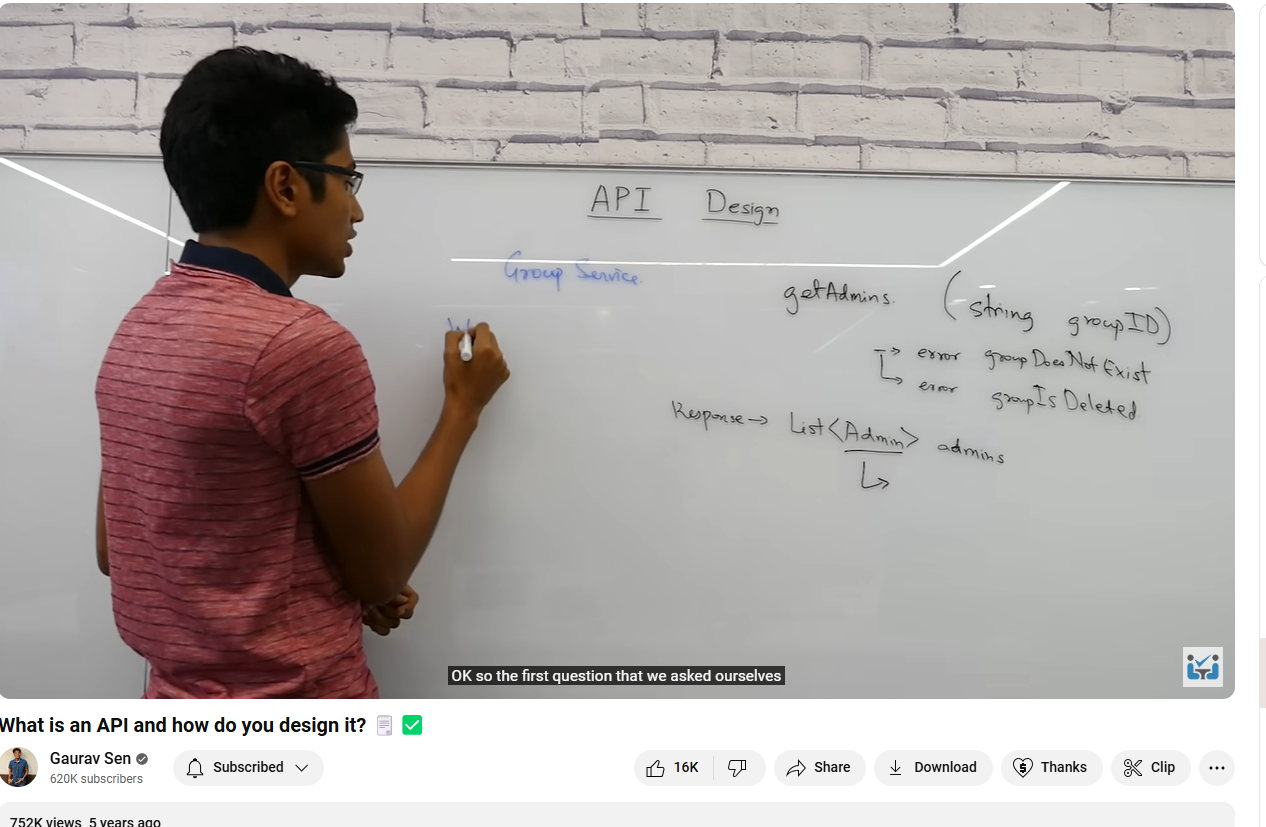 API Design
Group Service.
W
getAdmins. (string groupID)
→ error groupDoesNotExist
↳ error groupIsDeleted
Response → List<Admin> admins
↳
OK so the first question that we asked ourselves
What is an API and how do you design it?
Gaurav Sen
620K subscribers
Subscribed
16K
Share
Download
Thanks
Clip
752K views 5 years ago